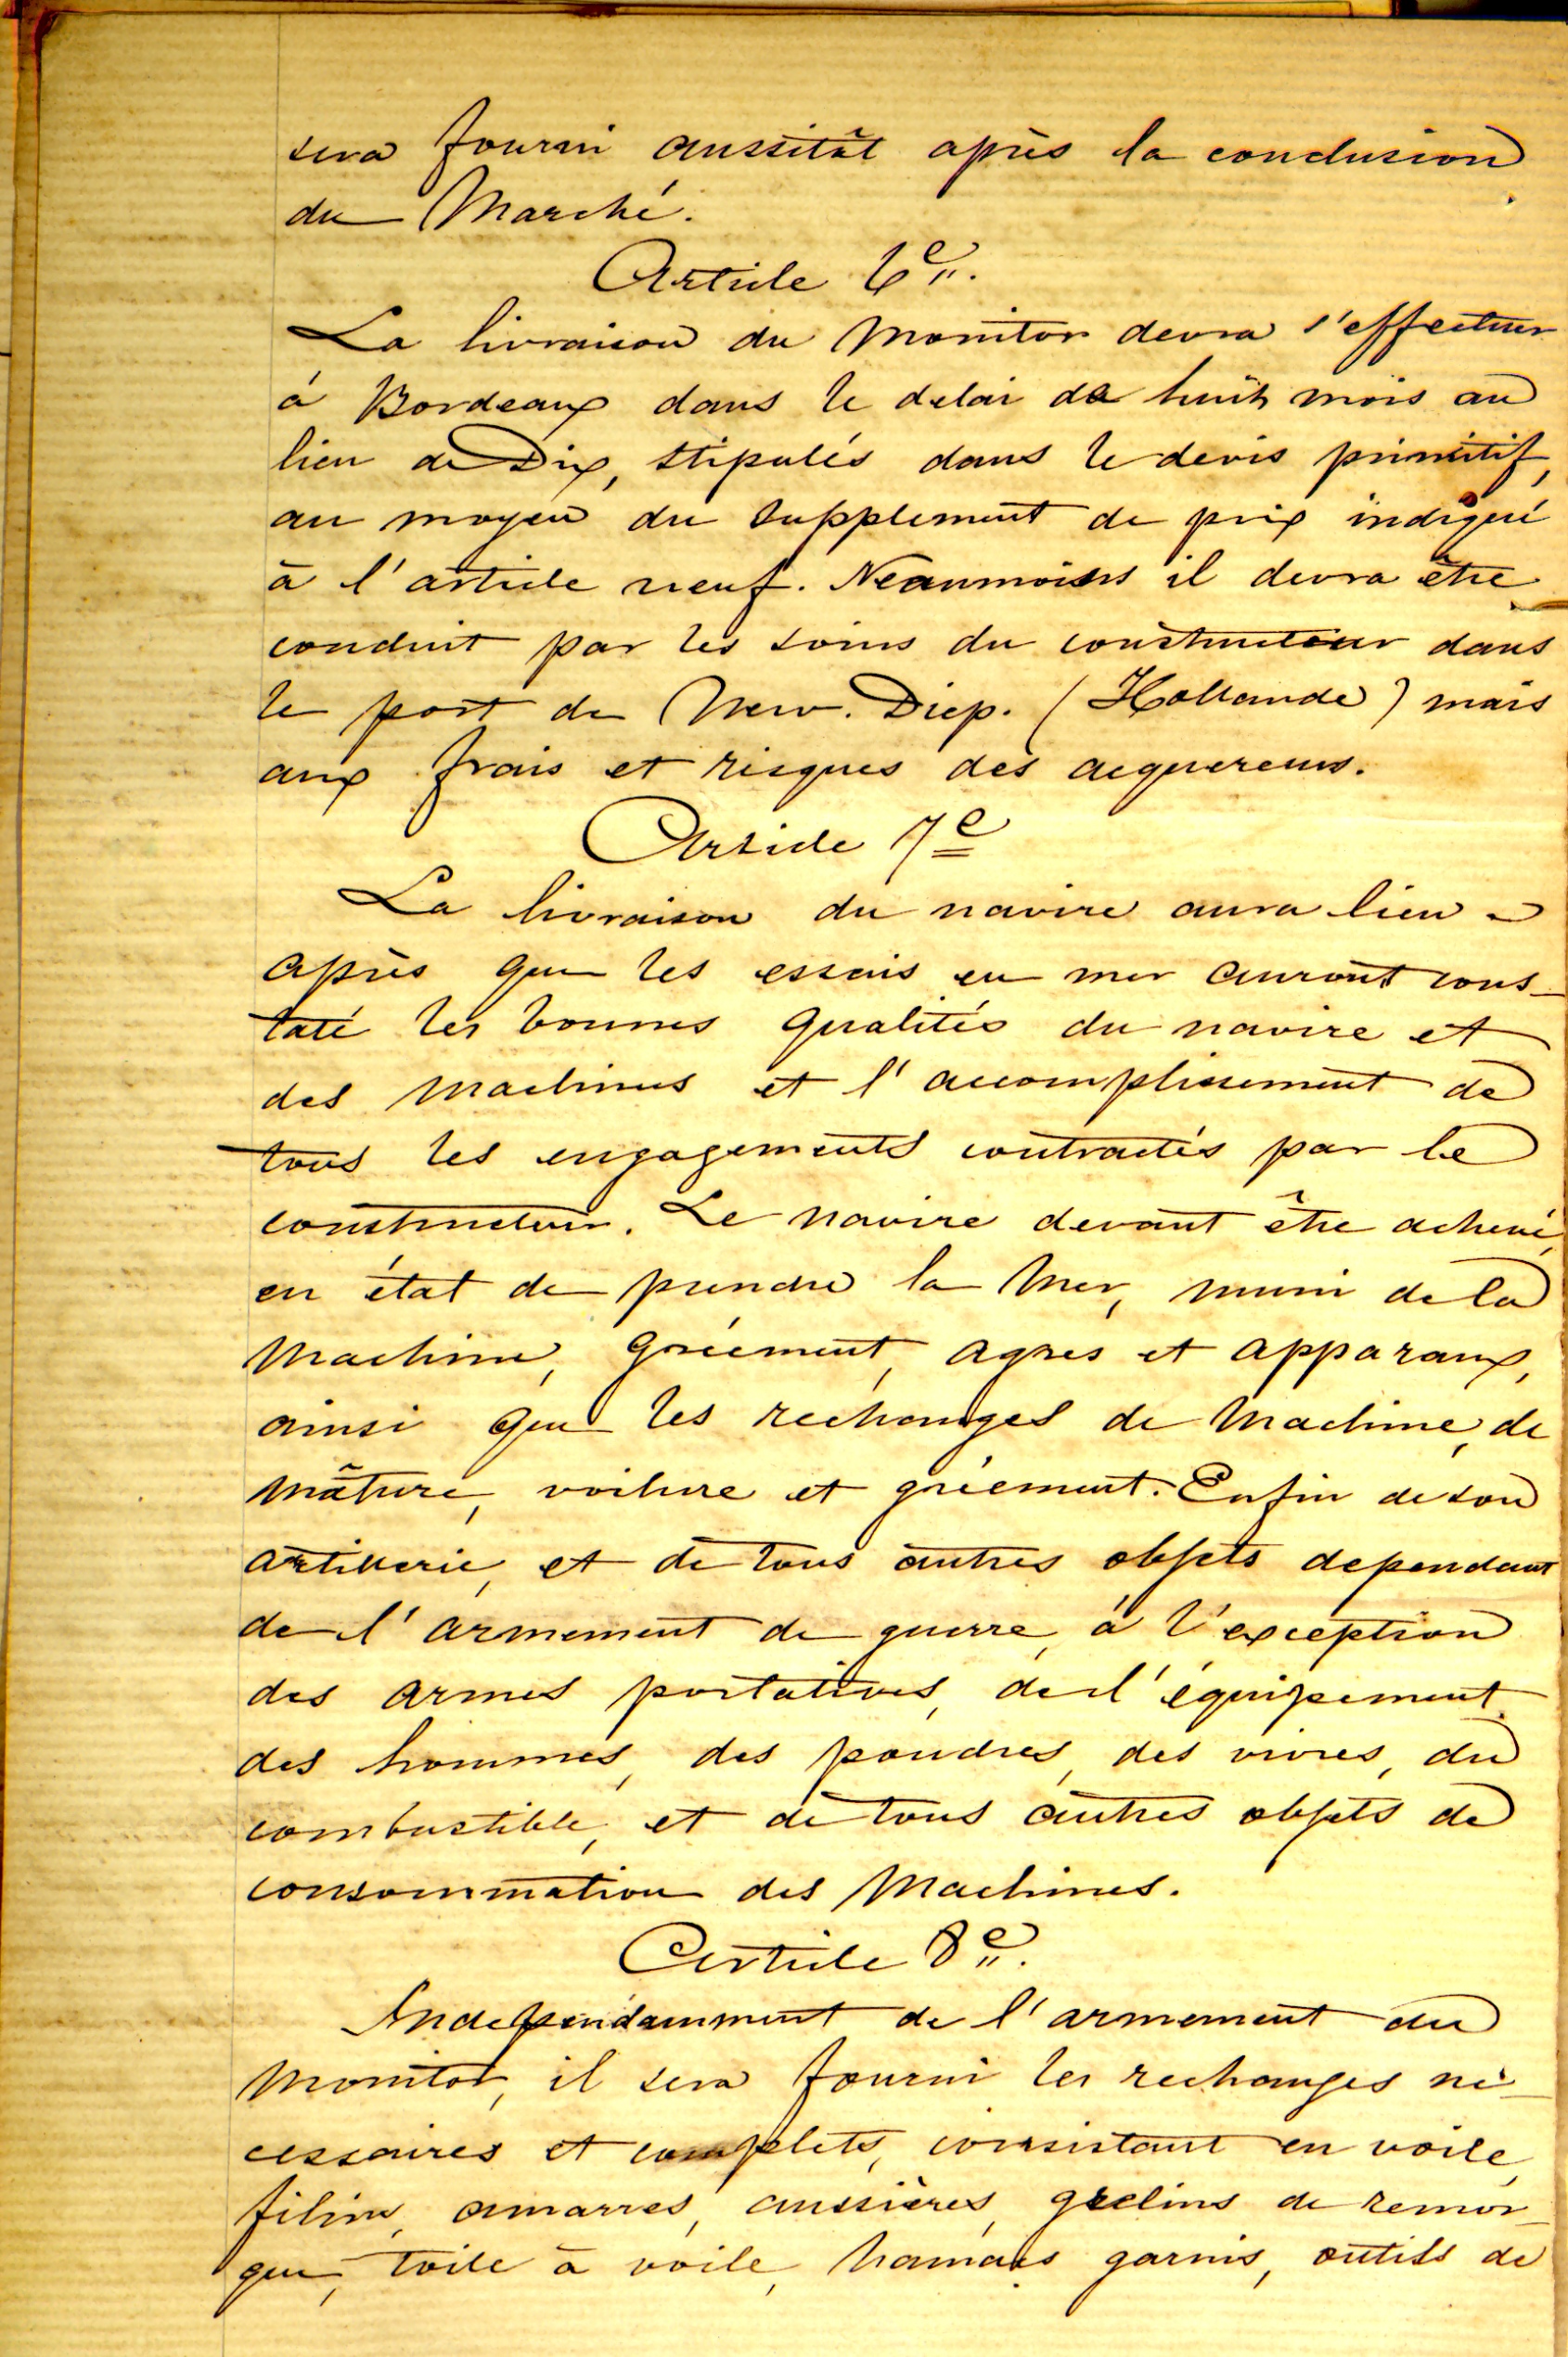 sera fourni aussitôt après la conclusion
du Marché.
Article 6e.
La livraison du Monitor devra s'effectuer
à Bordeaux dans le delai de huit mois au
lieu de Dix, stipulés dans le devis primitif,
au moyen du supplement de prix indiqué
à l'article neuf. Neanmoins il devra être
conduit par les soins du constructeur dans
le port de New. Diep. (Hollande) mais
aux frais et risques des acquereurs.
Article 7e
La livraison du navire aura lieu
après que les essais en mer auront cons-
taté les bonnes qualités du navire et
des machines et l'accomplissement de
tous les engagements contractés par le
constructeur. Le navire devant être achevé,
en état de prendre la Mer, muni de la
Machine, gréement, agrès et apparaux,
ainsi que les rechanges de Machine, de
mâture, voilure et gréement. Enfin de son
artillerie, et de tous autres objets dependant
de l'armement de guerre, à l'exception
des armes portatives, de l'équipement
des hommes, des poudres, des vivres, du
combustible, et de tous autres objets de
consommation des Machines.
Article 8e.
Independamment de l'armement du
Monitor, il sera fourni les rechanges né-
cessaires et complets, consistant en voile,
filins, amarres, aussières, grelins de remor-
que, toile à voile, hamacs garnis, outils de